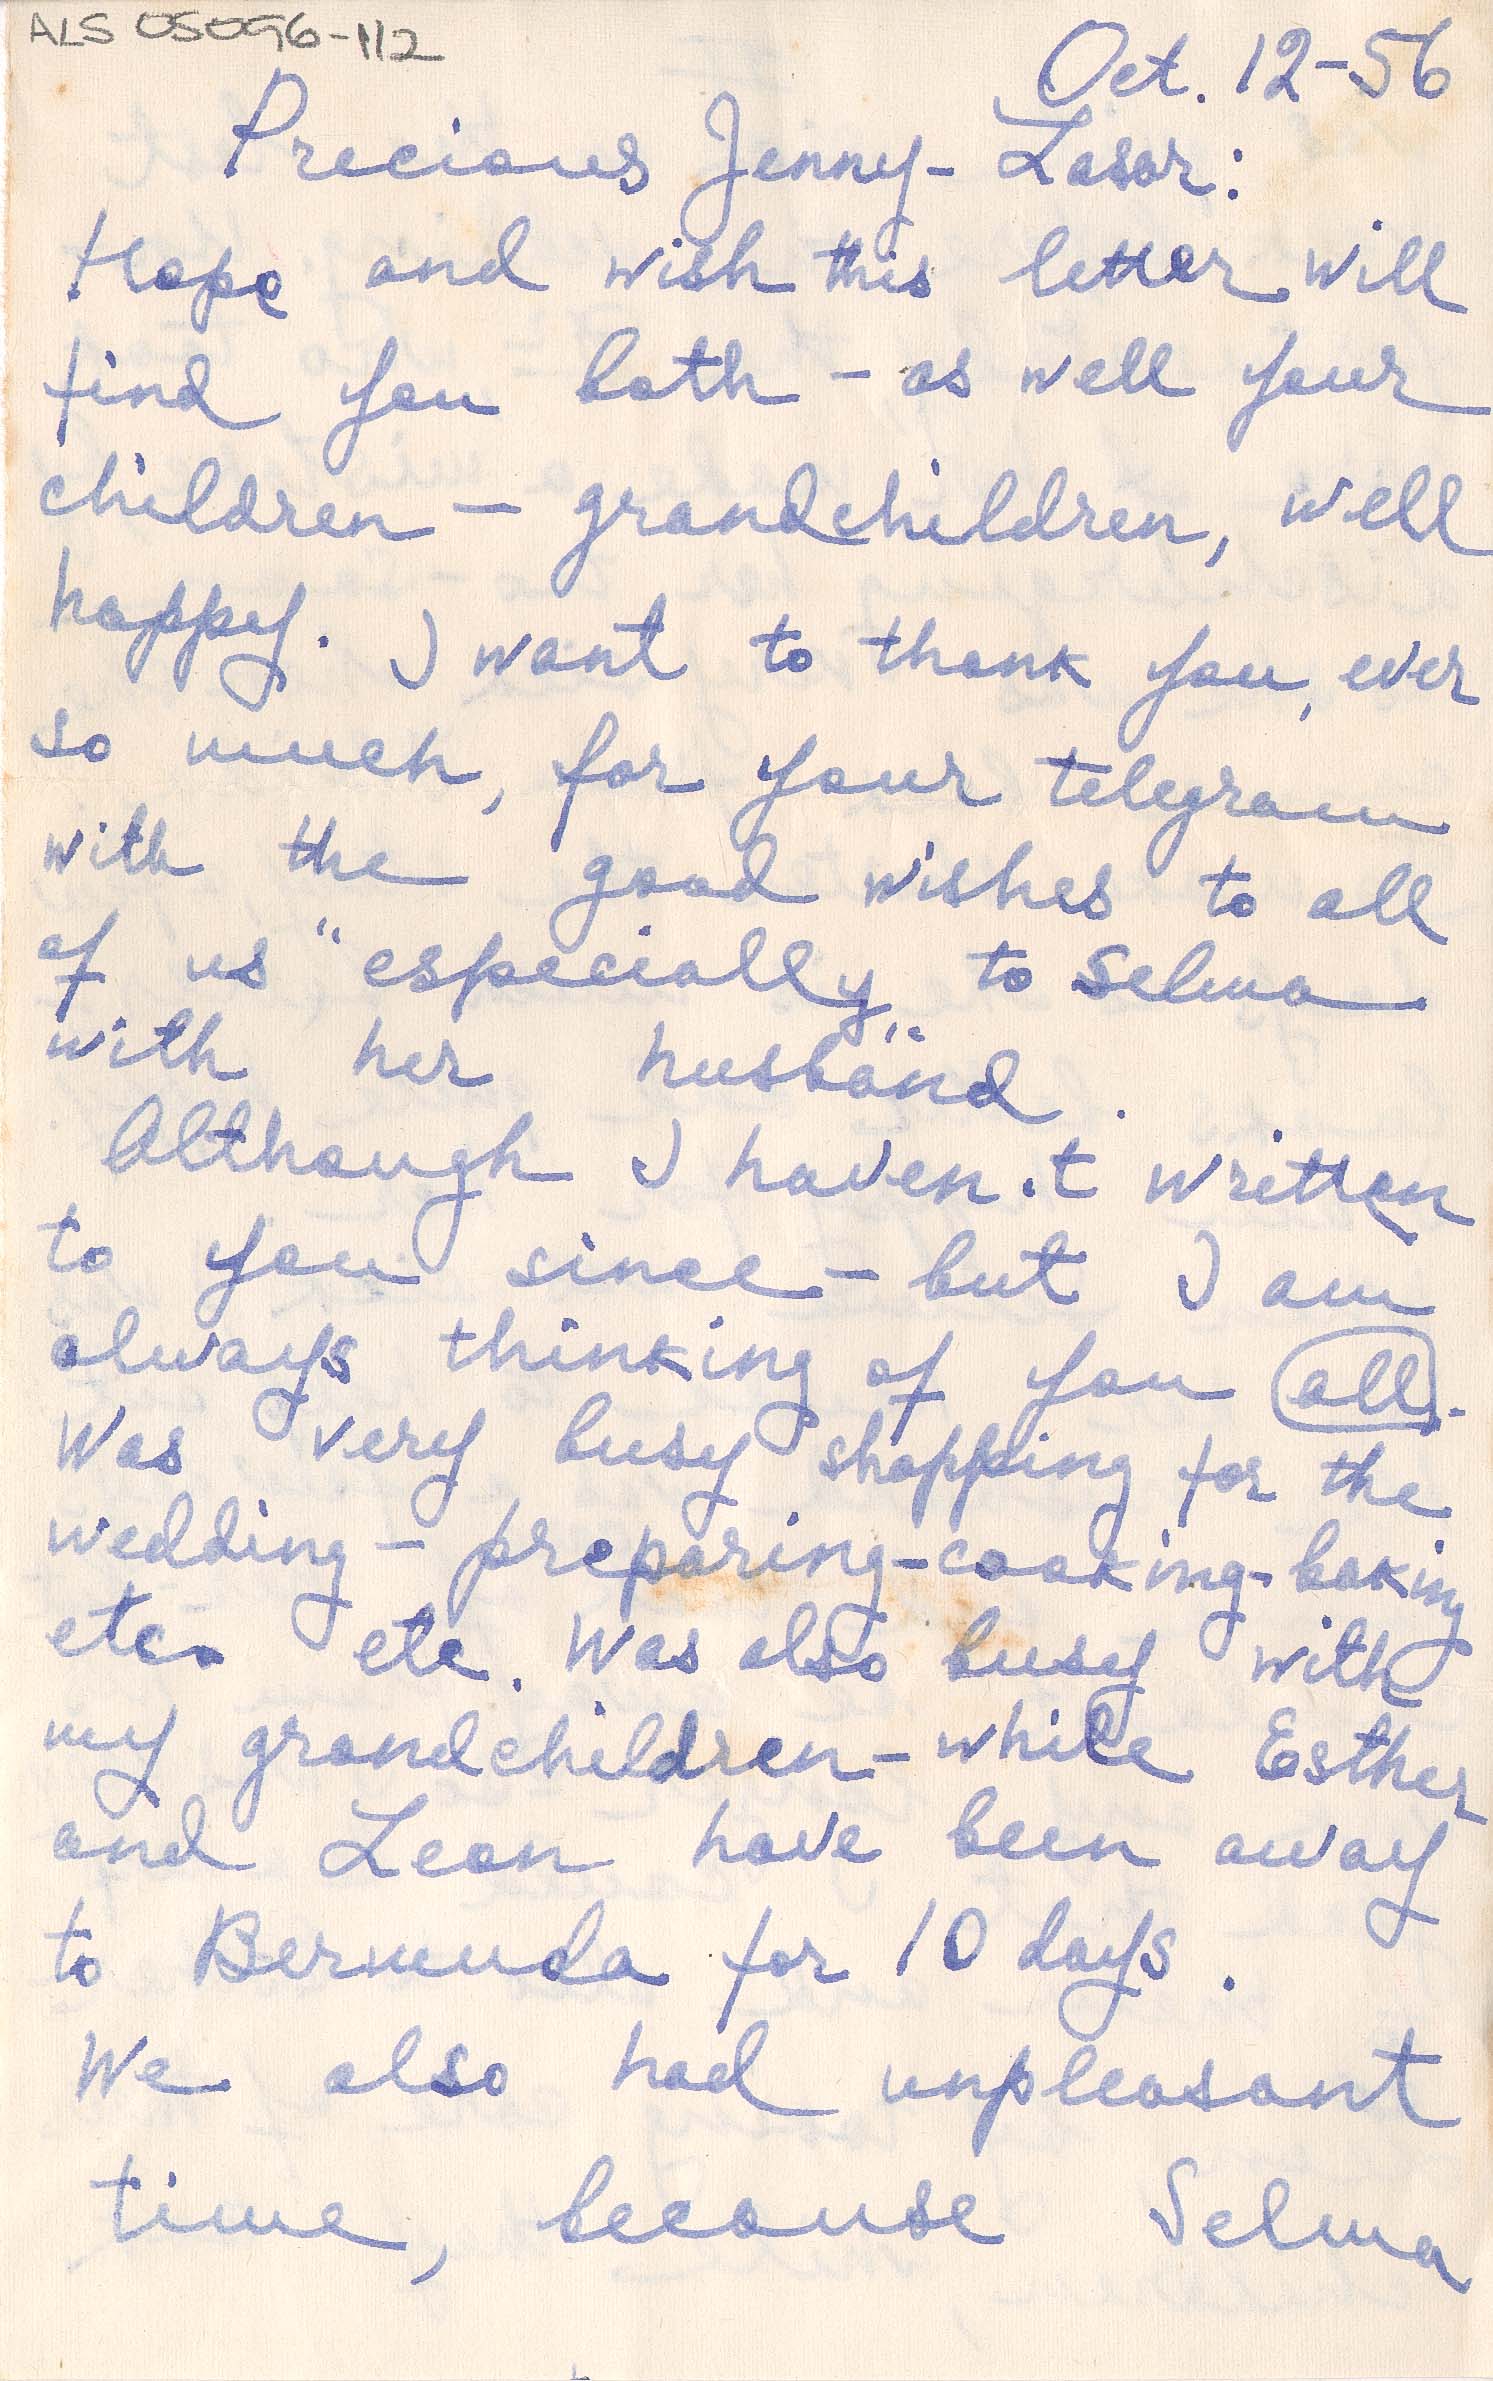 ALS 05096-112
Oct. 12-56
Precious Jenny- Lasar:
Hope and wish this letter will
find you both - as well your
children - grandchildren, well
happy. I want to thank you, ever
so much, for your telegram
with the good wishes to all
of us "especially" to Selma
with her husband.
Although I haven.t written
to you since - but I am
always thinking of you all.
Was very busy shopping for the
wedding - preparing-cooking-baking
etc. etc. Was also busy with
my grandchildren - while Esther
and Leon have been away
to Bermuda for 10 days.
We also had unpleasant
time, because Selma